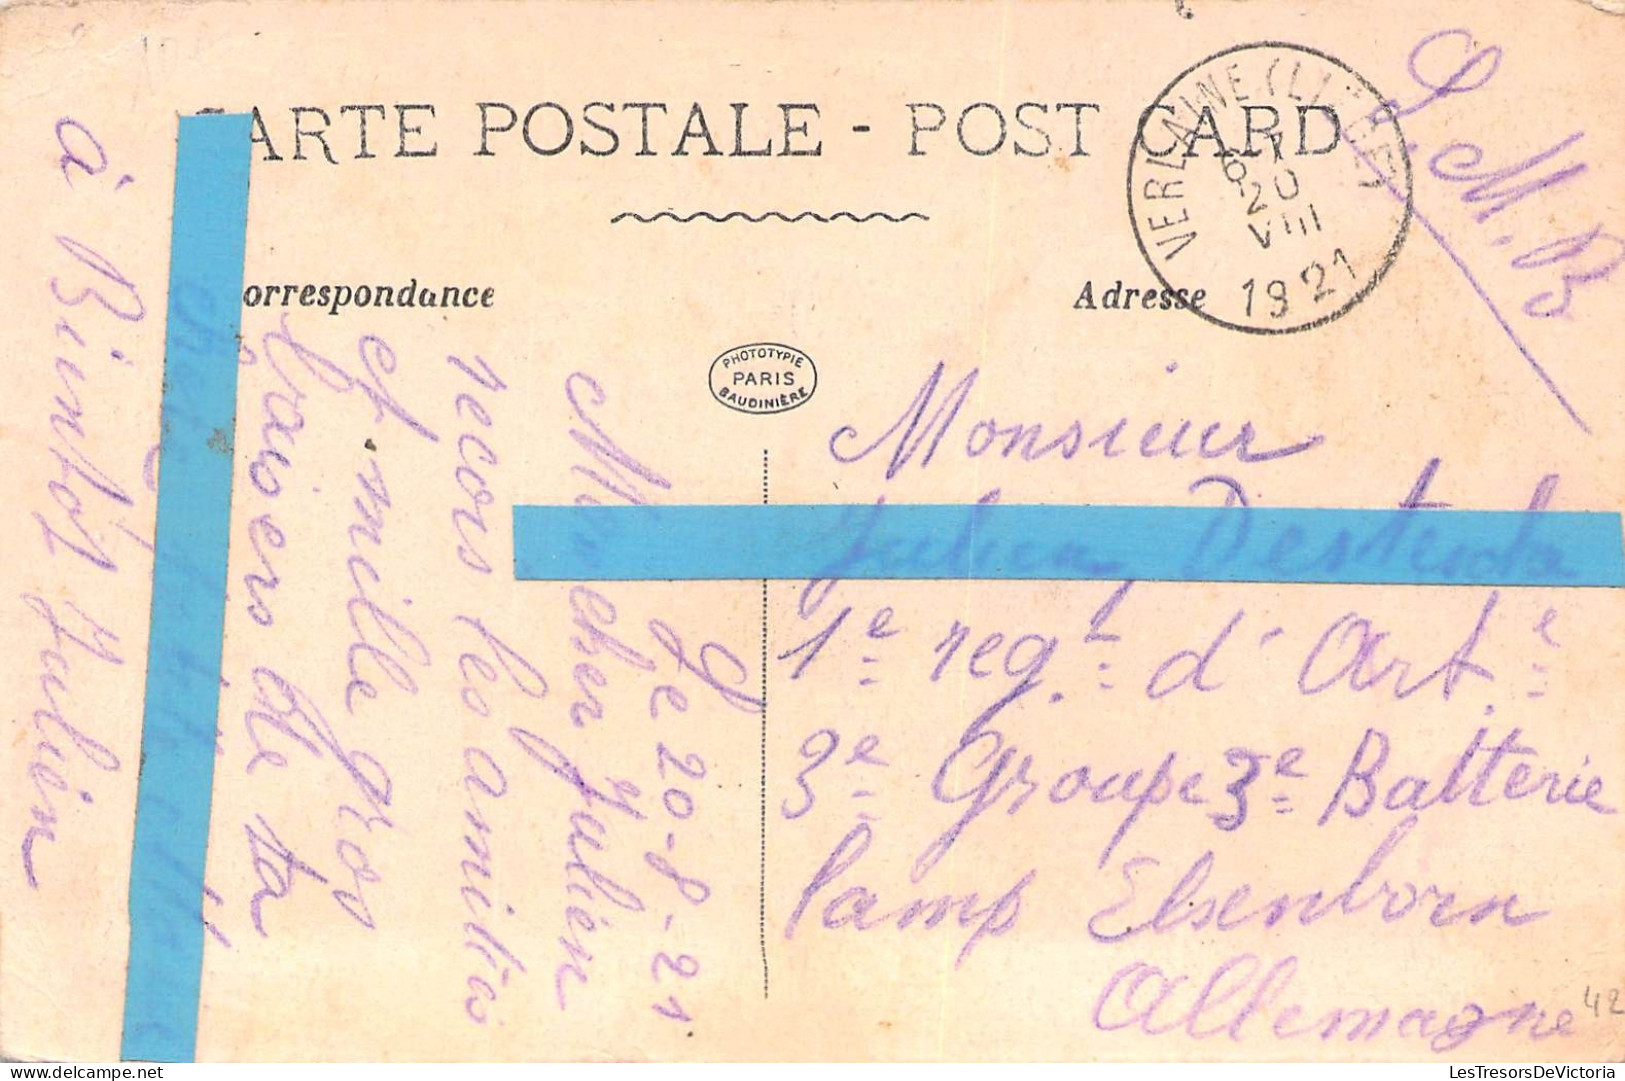 CARTE POSTALE - POST CARD
Correspondance
Adresse
VERLAINE (LIEGE)
6-7
20
VIII
1921
S.M.B
PHOTOTYPIE
PARIS
BAUDINIÈRE
Le 20-8-21
Mon cher Julien
reçois les amitiés
et mille gros
baisers de ta
à Bientôt Julien
Monsieur
Julien
1e regt d'Arte
3e Groupe 3e Batterie
Camp Elsenborn
Allemagne
42
LesTresorsDeVictoria